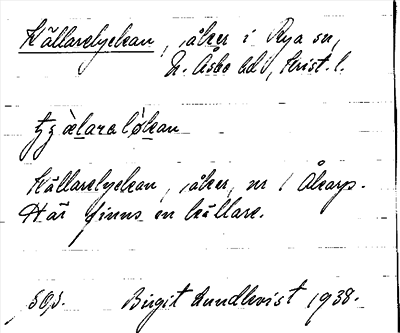 Källarelyckan, åker i Rya sn,
N. Åsbo hd, Krist. l.
Källarelyckan, åker, nr 1 Åkarp.
Här finns en källare.
Birgit Lundkvist 1938.